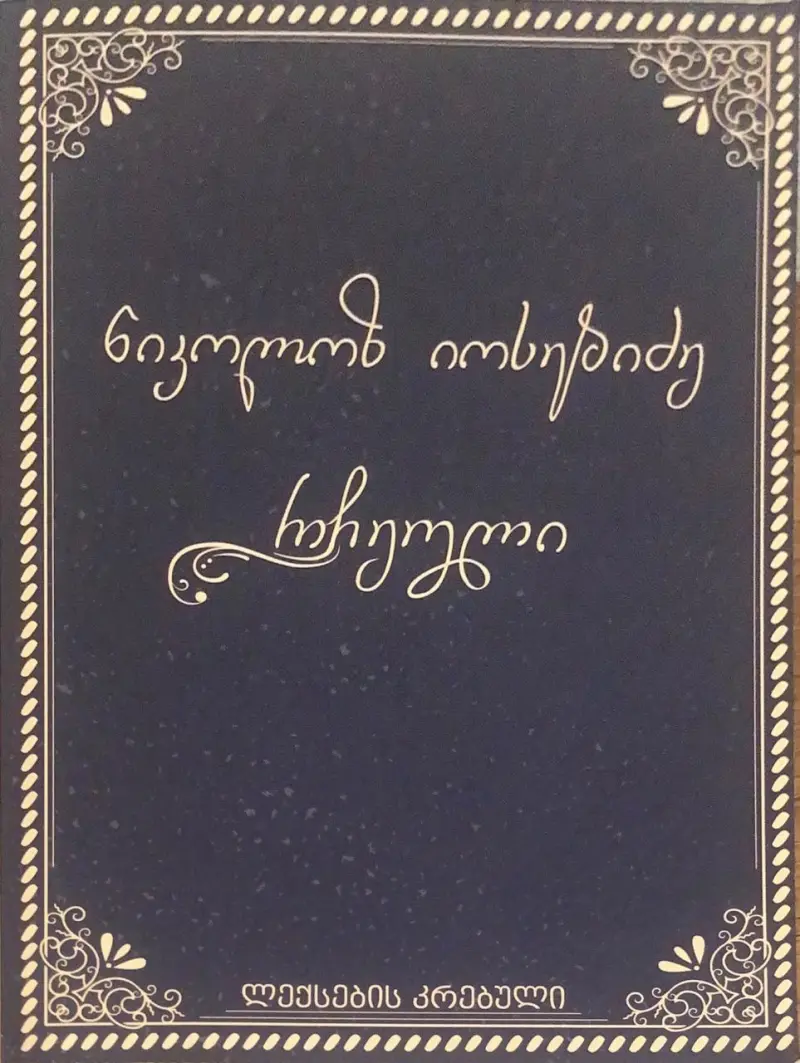 ნიკოლოზ იოსებიძე
რჩეული
ლექსების კრებული